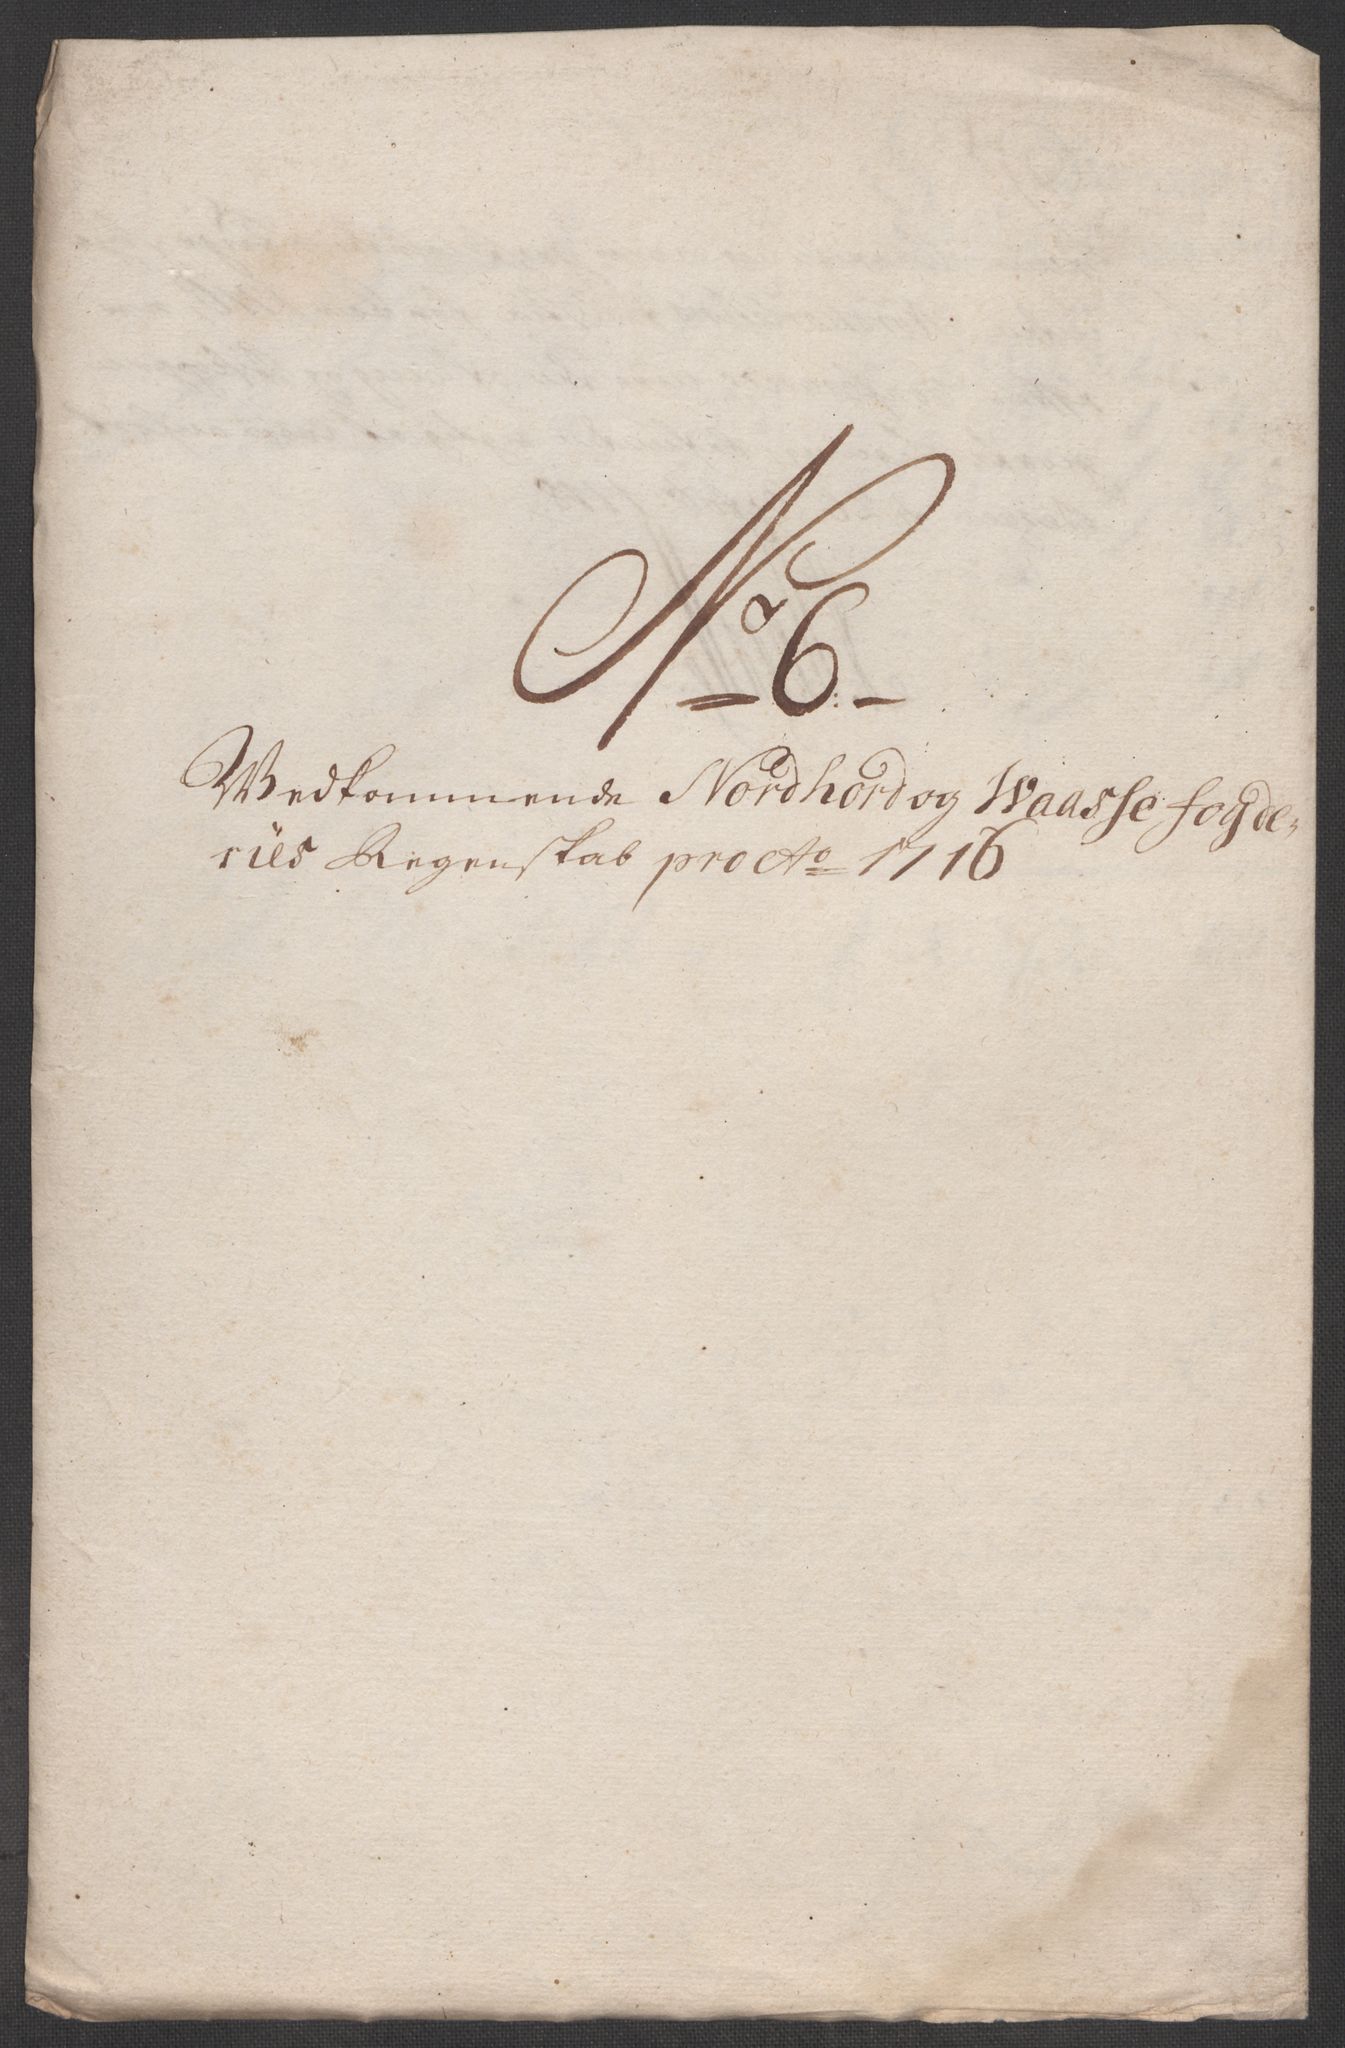 No 6:-
Wedkommende Nordhord og Waasse fogde-
riis Regenskab pro Ao 1716